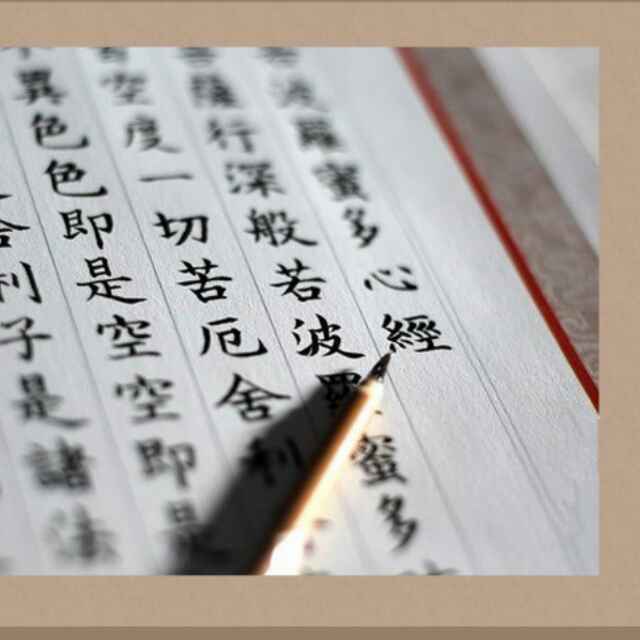 波羅蜜多心經
薩行深般若波羅蜜多
空度一切苦厄舍利
異色色即是空空即是
舍利子是諸法